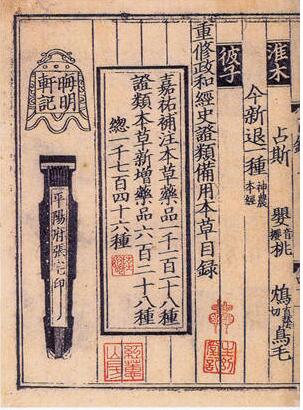 淮木
占斯　嬰音櫻桃　鴆直蔭切鳥毛
今新退一種神農本經
彼子
重修政和經史證類備用本草目録
嘉祐補注本草藥品一千一百一十八種
證類本草新增藥品六百二十八種
總一千七百四十六種
晦明
軒記
平陽府張宅印